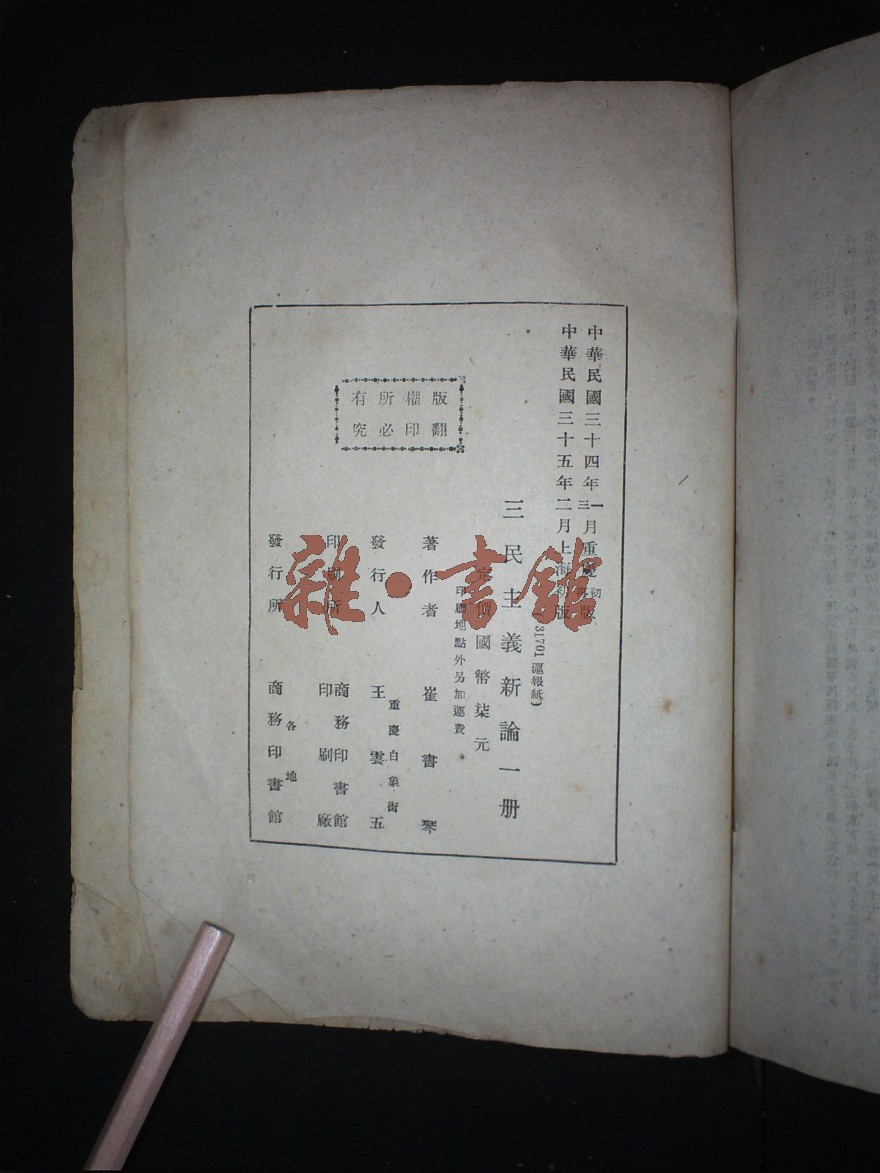 中華民國三十四年一三月重慶初再版
中華民國三十五年二月上海初版
三民主義新論一册
(31701 滬報紙)
定價國幣柒元
印刷地點外另加運費
版權所有
翻印必究
著作者 崔書琴
發行人 王雲五
重慶白象街
印刷所 商務印書館
印刷廠
發行所 各地
商務印書館
雜·書館